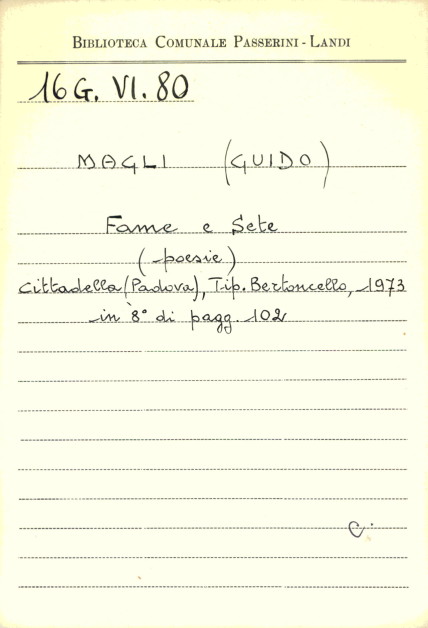 BIBLIOTECA COMUNALE PASSERINI - LANDI
16 G. VI. 80
MAGLI (GUIDO)
Fame e Sete
(poesie)
Cittadella (Padova), Tip. Bertoncello, 1973
in 8° di pagg. 102
C.